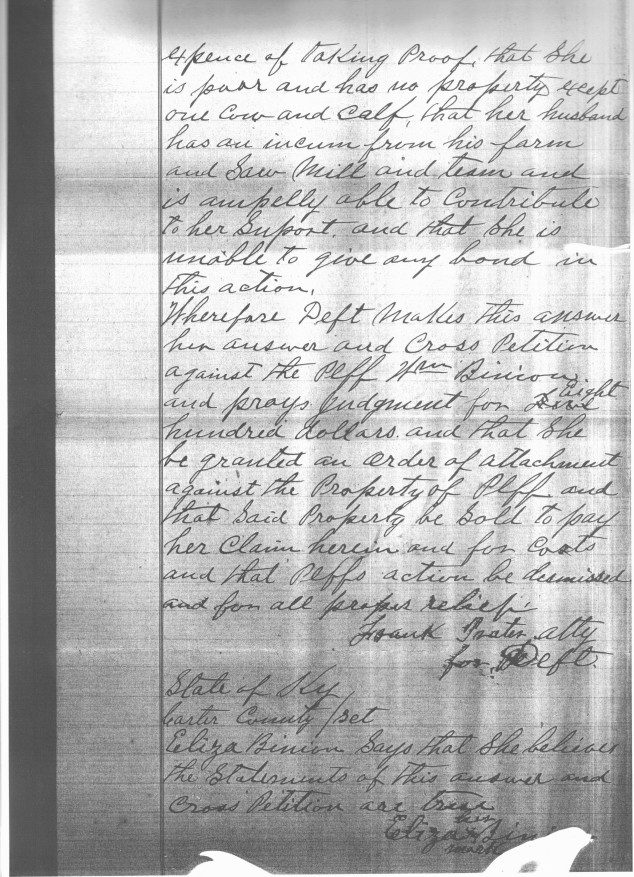 expence of Taking Proof, that She
is poor and has no property except
one Cow and Calf, that her husband
has an incum from his farm
and Saw Mill and team and
is ampelly able to Contribute
to her Suport. and that She is
unable to give any bond in
this action.
Wherefore Deft Makes this answer
her answer and Cross Petition
against the Plff Wm Binion
and prays Judgment for Eight
hundred dollars. and that She
be granted an order of attachment
against the Property of Plff and
that Said Property be Sold to pay
her Claim herein and for Costs
and that Plffs action be desmissed
and for all proper relief.
Frank Prater atty
for Deft.
State of Ky
Carter County /Sct
Eliza Binion Says that She believes
the Statements of this answer and
Cross Petition are true
her
Eliza x
mark